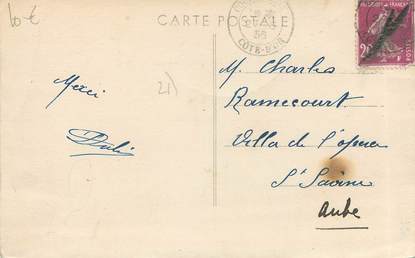 10 €
CARTE POSTALE
36
COTE-D'OR
20
POSTES
21)
M. Charles
Ramecourt
Merci
Villa de l'
Dali
St Savine
Aube